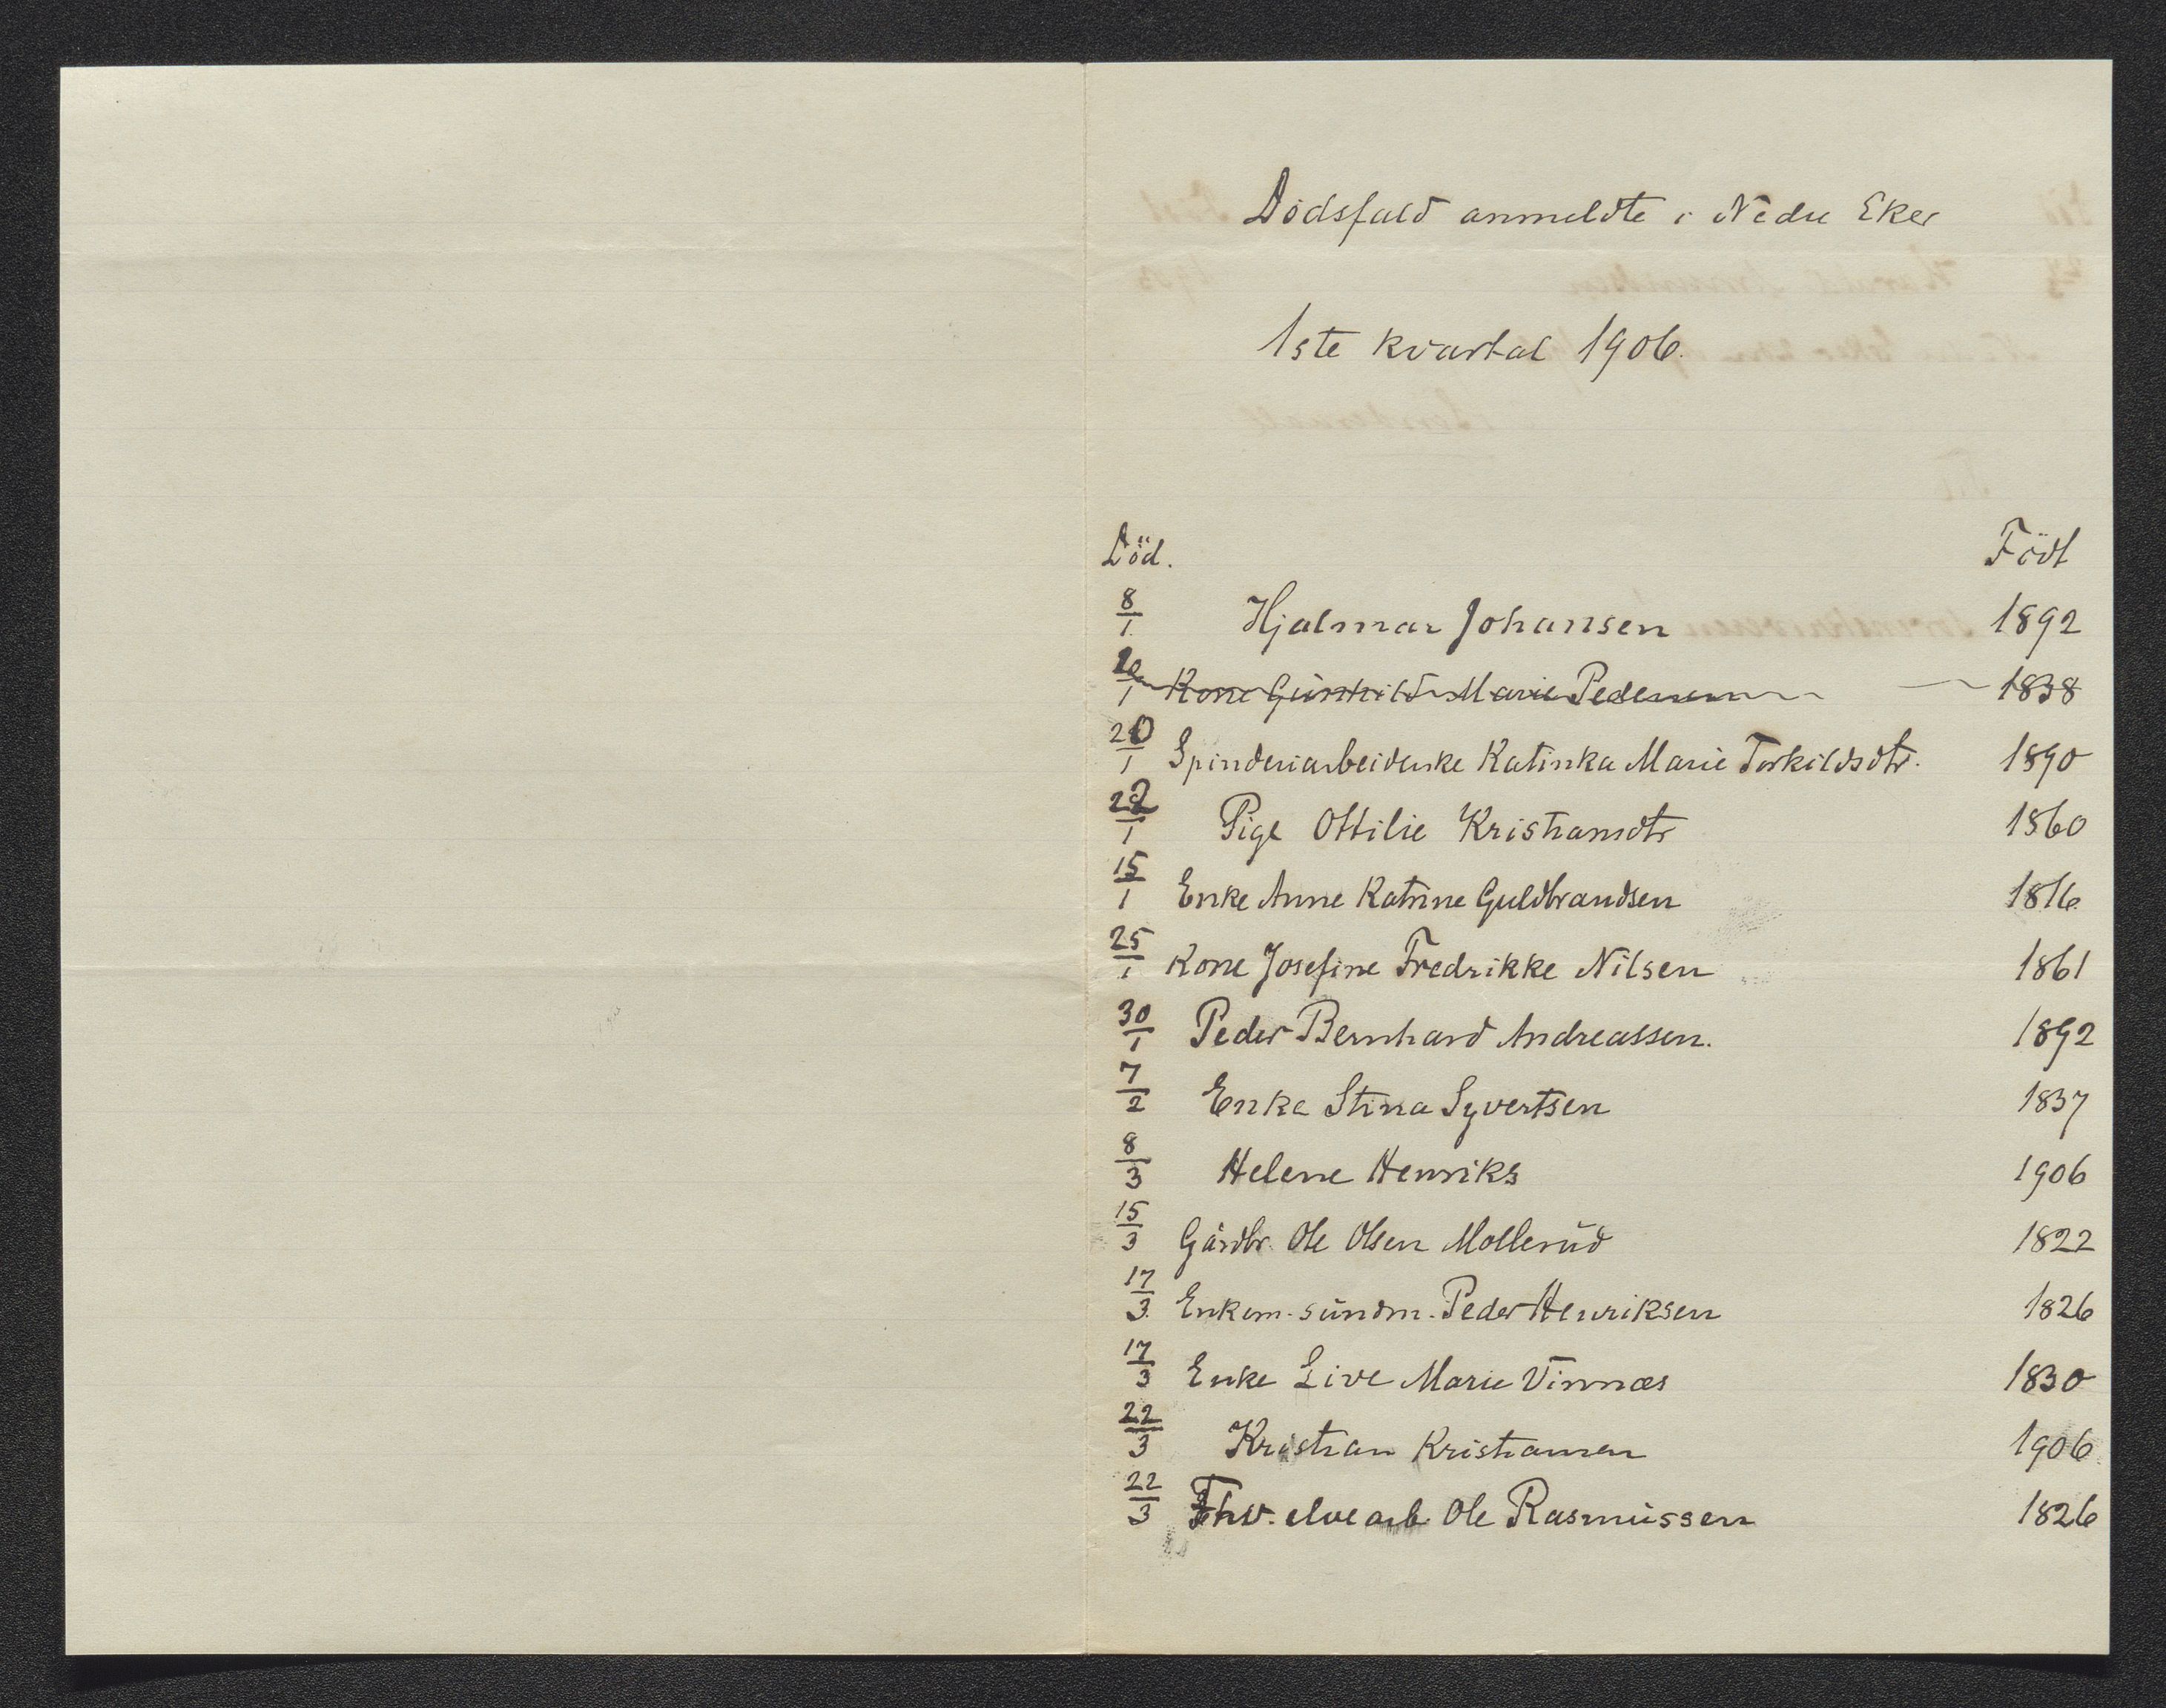 Dödsfald anmeldte i Nedre Eker
1ste kvartal 1906.
Död. Födt
8/1 Hjalmar Johansen 1892
20/1 Kone Gunhild Marie Pedersen 1838
20/1 Spinderiarbeiderske Katinka Marie Torkildsdtr. 1890
22/1 Pige Ottilie Kristiansdtr 1860
15/1 Enke Anne Katrine Guldbrandsen 1816
25/1 Kone Josefine Fredrikke Nilsen 1861
30/1 Peder Bernhard Andreassen. 1892
7/2 Enke Stina Syvertsen 1837
8/3 Helene Henriks 1906
15/3 Gårdbr. Ole Olsen Mollerud 1822
17/3 Enkem. sundm. Peder Henriksen 1826
17/3 Enke Live Marie Vinnæs 1830
22/3 Kristian Kristiansen 1906
22/3 Fhv. elvearb. Ole Rasmussen 1826